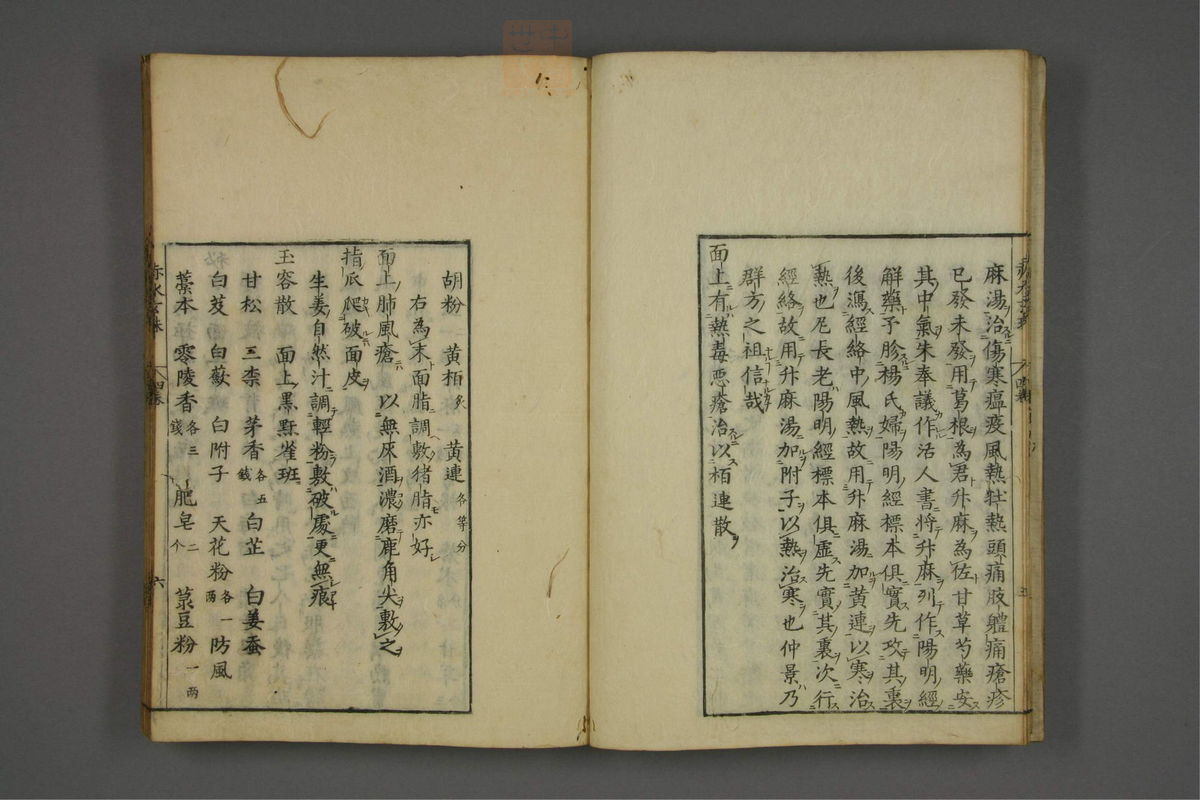 麻湯治傷寒瘟疫風熱壯熱頭痛肢體痛瘡疹
已發未發用葛根為君升麻為佐甘草芍藥安
其中氣朱奉議作活人書將升麻列作陽明經
解藥予胗楊氏婦陽明經標本俱實先攻其裏
後瀉經絡中風熱故用升麻湯加黃連以寒治
熱也尼長老陽明經標本俱虛先實其裏次行
經絡故用升麻湯加附子以熱治寒也仲景乃
群方之祖信哉
面上有熱毒惡瘡治以栢連散
胡粉 黃栢炙 黃連各等分
右為末面脂調敷猪脂亦好
面上肺風瘡以無灰酒濃磨鹿角尖敷之
指爪爬破面皮
生姜自然汁調輕粉敷破處更無痕
玉容散 面上黑䵟雀斑
甘松 三柰 茅香各五錢 白芷 白姜蚕
白芨 白蘞 白附子 天花粉各一兩 防風
藁本 零陵香各三錢 肥皂二个 菉豆粉一兩
赤水玄珠 四卷 六